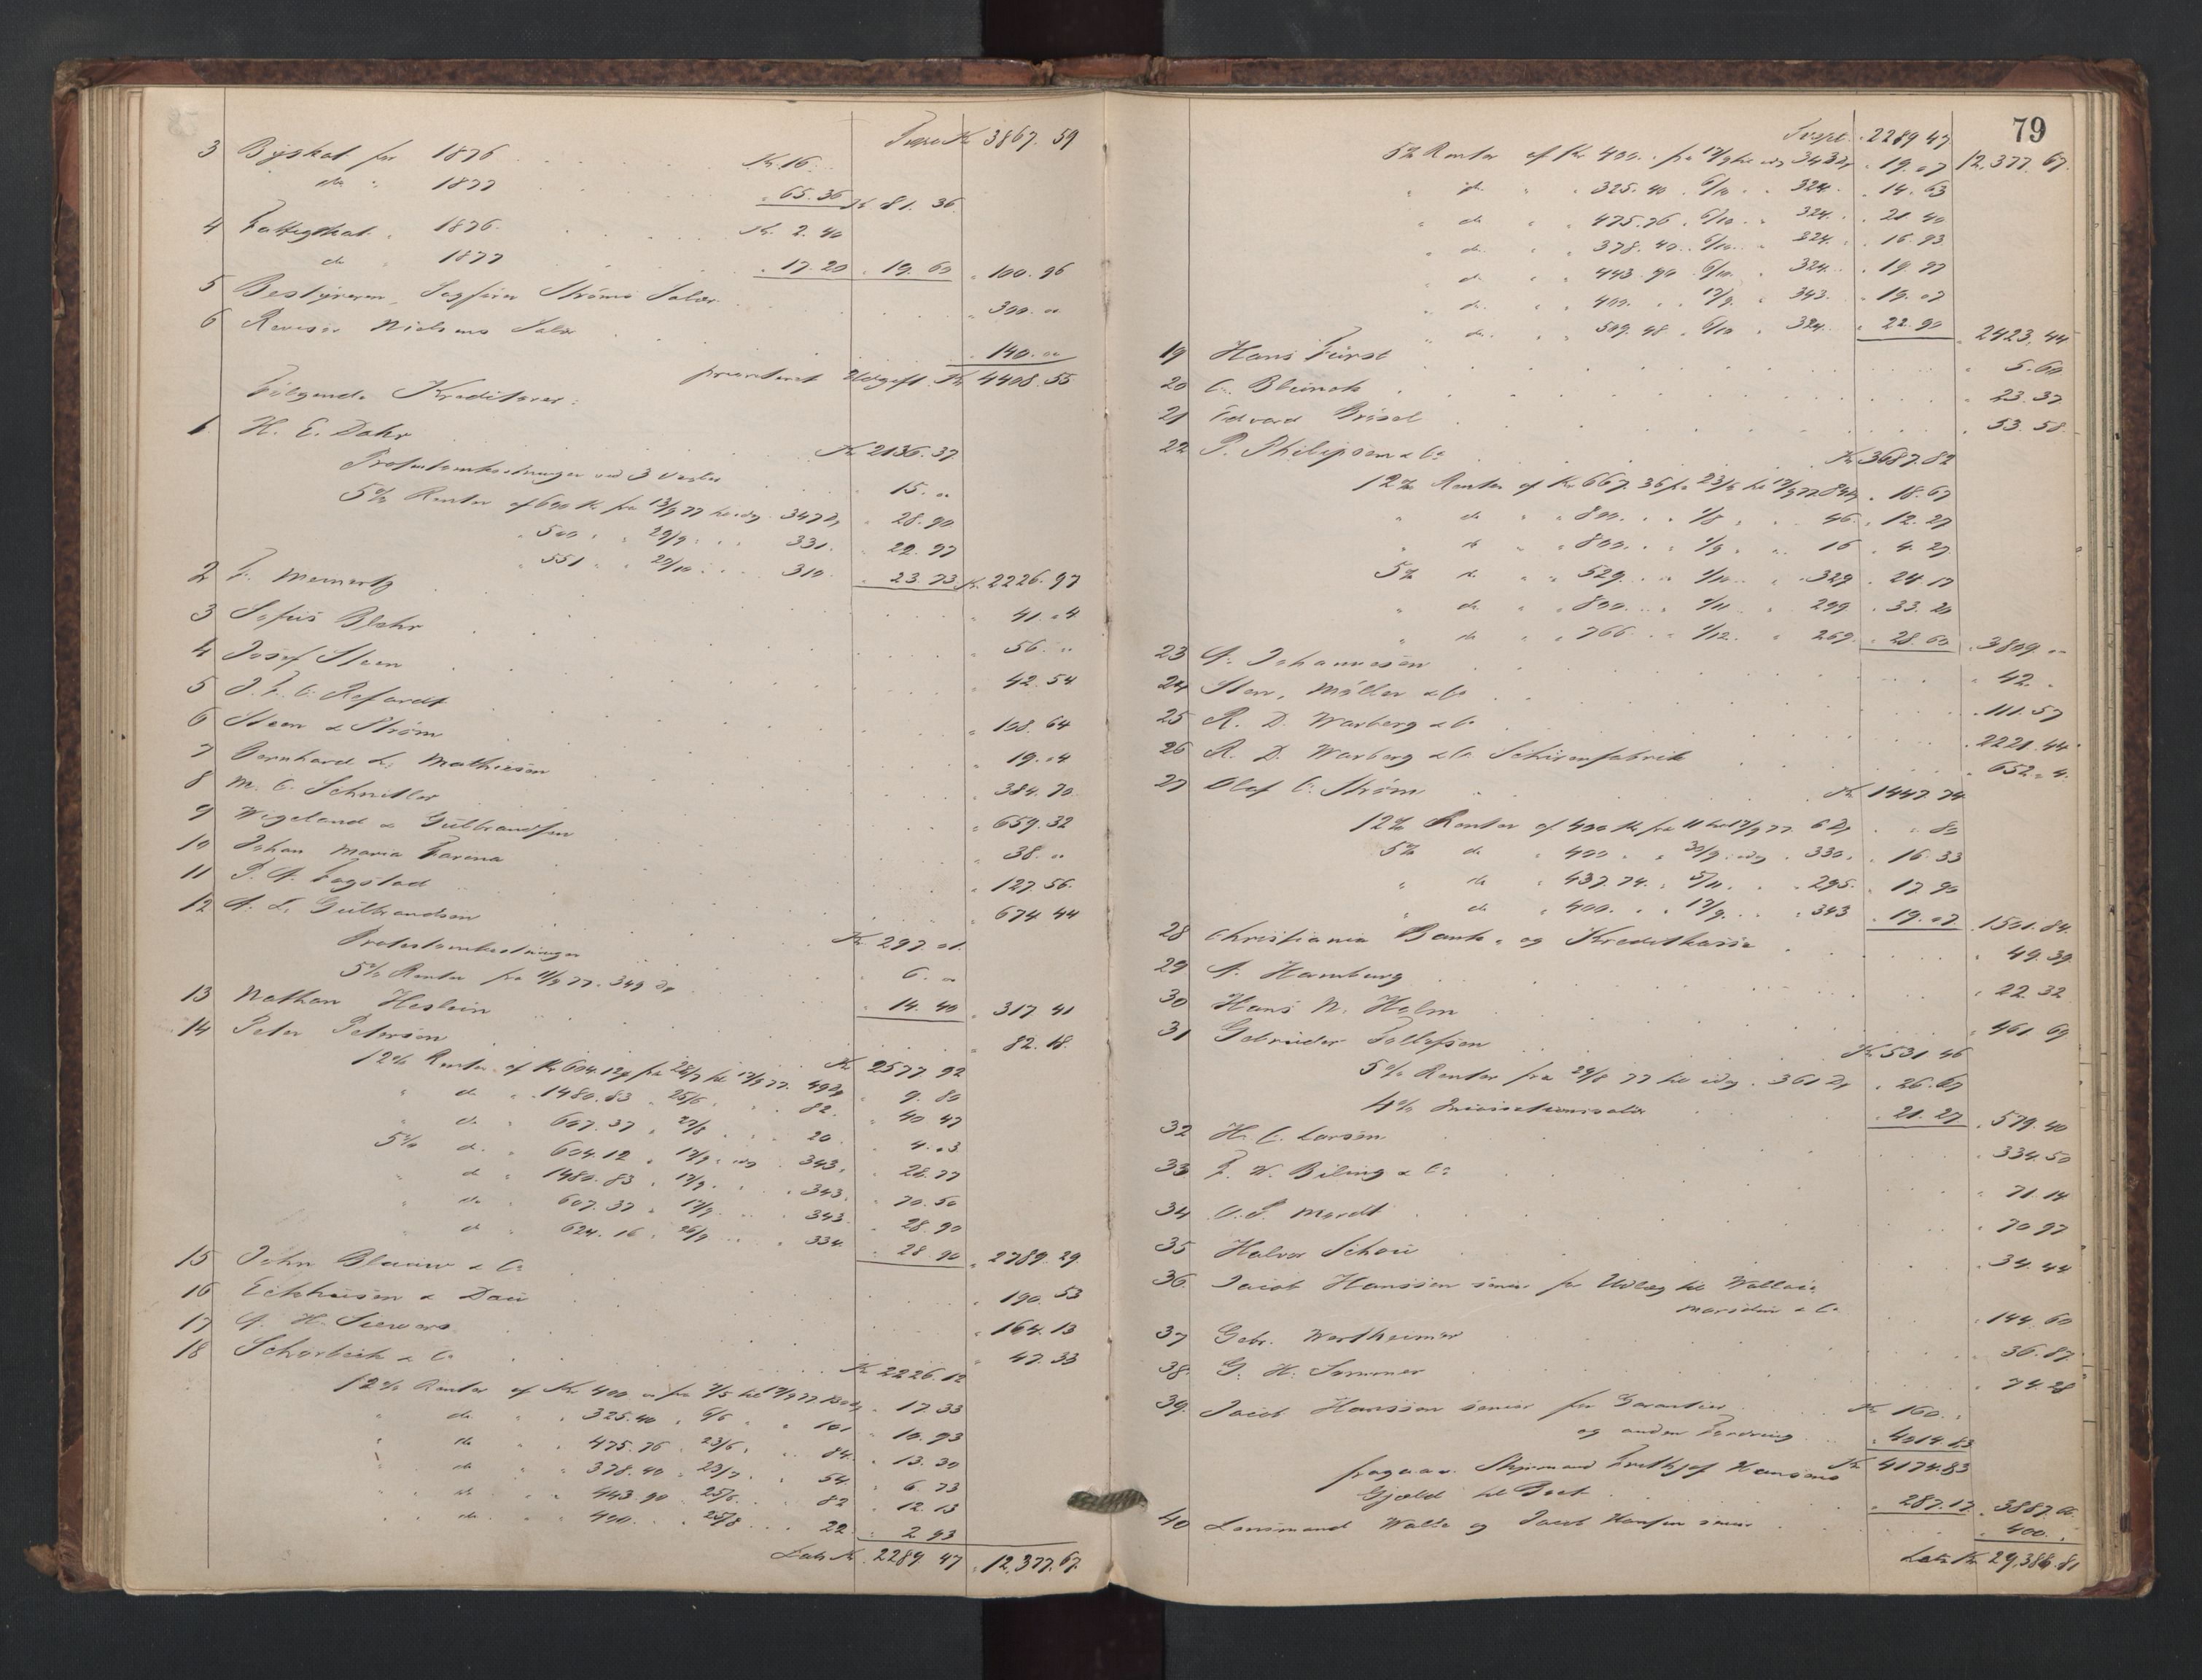 Transp Kr 3867.59
3 Byskat for 1876 . . . Kr. 16.
do " 1877 . . . " 65.36 Kr 81.36
4 Fattigskat " 1876 . . . Kr. 2.40
do " 1877 . . . " 17.20 " 19.60 " 100.96
5 Bestyreren, Sagfører Strøms Salær . . . " 300."
6 Revisor Nielsens Salær . . . " 140."
prioriteret Udgift Kr 4408.55
Følgende Kreditorer:
1 H. E. Dahr . . . Kr 2136.37
Protestomkostninger ved 3 Vexler . . . " 15."
5% Renter af 600 Kr fra 13/9 77 til idag 347 Dg " 28.90
" 500 " " 29/9 " " 331 " 22.97
" 551 " " 20/10 " " 310 " 23.73 Kr 2226.97
2 F. Meinertz . . . " 41.04
3 Sofus Blehr . . . " 56."
4 Josef Steen . . . " 42.54
5 J. F. C. Refardt . . . " 108.64
6 Steen & Strøm . . . " 19.04
7 Bernhard L. Mathiesen . . . " 384.70
8 M. C. Schnitler . . . " 659.32
9 Wigeland & Gulbrandsen . . . " 38."
10 Johan Maria Farina . . . " 127.56
11 P. A. Fagstad . . . " 674.44
12 A. L. Gulbrandsen . . . Kr 297.01
Protestomkostninger . . . " 6."
5% Renter fra 11/9 77. 349 Dg . . . " 14.40 " 317.41
13 Nathan Heslein . . . " 82.18
14 Peter Petersen . . . Kr 2577.92
12% Renter af Kr 604.12 fra 28/7 til 17/9 77. 49 Dg " 9.80
" do " 1480.83 " 25/6 " " 82 " 40.47
" do " 607.37 " 27/8 " " 20 " 4.03
5% do " 604.12 " 17/9 " idag 343 " 28.77
" do " 1480.83 " 17/9 " " 343 " 70.50
" do " 607.37 " 17/9 " " 343 " 28.90
" do " 624.16 " 26/9 " " 334 " 28.90 " 2789.29
15 John Blauw & Co . . . " 190.53
16 Eckhusen & Dau . . . " 164.13
17 A. H. Siewers . . . " 47.33
18 Scharbeck & Co . . . Kr 2226.12
12% Renter af Kr 400 " fra 7/5 til 17/9 77 130 Dg " 17.33
" do " " 325.40 " 6/6 " " 101 " 10.93
" do " " 475.76 " 23/6 " " 84 " 13.30
" do " " 378.40 " 23/7 " " 54 " 6.73
" do " " 443.90 " 25/6 " " 82 " 12.13
" do " " 400 " 25/8 " " 22 " 2.93
Lats Kr 2289.47 " 12,377.67
79
Transpt. " 2289.47 12,377.67
5% Renter af Kr 400 " fra 17/9 til idag 343 Dg " 19.07
" do " " 325.40 " 6/10 " " 324 " 14.63
" do " " 475.76 " 6/10 " " 324 " 21.40
" do " " 378.40 " 6/10 " " 324 " 16.93
" do " " 443.90 " 6/10 " " 324 " 19.97
" do " " 400 " " 17/9 " " 343 " 19.07
" do " " 509.48 " 6/10 " " 324 " 22.90 " 2423.44
19 Hans Fürst . . . " 5.60
20 C. Blunck . . . " 23.37
21 Edvard Brüsel . . . " 53.58
22 P. Philipsen & Co . . . Kr 3687.82
12% Renter af Kr 667.36 fra 23/6 til 17/9 77 84 Dg " 18.67
" do " " 800 " " 1/8 " " 46 " 12.27
" do " " 800 " " 1/9 " " 16 " 4.27
5% do " " 529 " " 1/10 " " 329 " 24.17
" do " " 800 " " 1/11 " " 299 " 33.20
" do " " 766 " " 1/12 " " 269 " 28.60 " 3809."
23 A. Johannesen . . . " 42."
24 Sten, Møller & Co . . . " 111.57
25 R. D. Warberg & Co . . . " 2221.44
26 R. D. Warberg & Co Schirmfabrik . . . " 652.04
27 Olaf C. Strøm . . . Kr 1447.74
12% Renter af 400 Kr fra 11 til 17/9 77. 6 Dg " " 80
5% do " 400 " " 30/9 " idag " 330 " 16.33
" do " 437.74 " 5/11 " " 295 " 17.90
" do " 400 " " 17/9 " " 343 " 19.07 " 1501.84
28 Christiania Bank- og Kreditkasse . . . " 49.39
29 A. Hamburg . . . " 22.32
30 Hans N. Holm . . . " 461.69
31 Gebrüder Tollefsen . . . Kr 531.46
5% Renter fra 24/8 77 til idag. 361 Dg " 26.67
4% . . . " 21.27 " 579.40
32 H. C. Larsen . . . " 334.50
33 F. W. Biling & Co . . . " 71.14
34 O. P. Mordt . . . " 70.97
35 Halvor Schou . . . " 34.44
36 Jacob Hanssen senior for Udlæg til Wallace
Marsden & Co . . . " 144.60
37 Gebr. Wertheimer . . . " 36.87
38 G. H. Sommer . . . " 74.28
39 Jacob Hanssen senior for Garantier . . . Kr 160."
og anden Fordring . . . " 4014.83
Kr 4174.83
fragaar Skipsmand Frithjof Hansens
Gjæld til Boet . . . " 287.17 " 3887.66
40 Lensmand Walle og Jacob Hansen senior . . . " 400."
Lats Kr 29,388.81